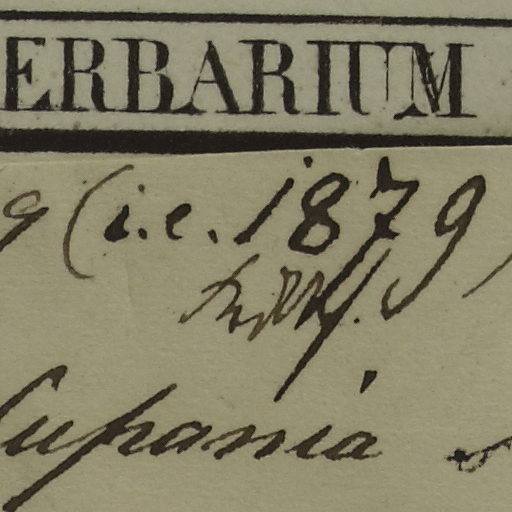 ERBARIUM
9 (i.e. 1879)
Cupania